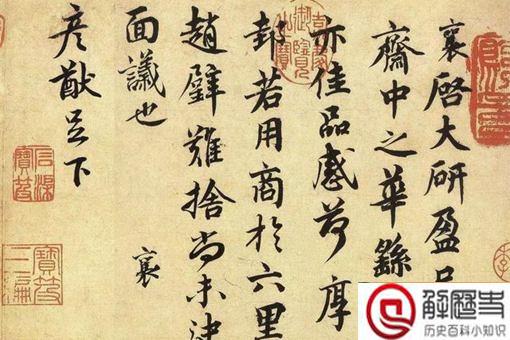 襄啓大研盈尺
齋中之華繇
亦佳品感荷厚
邽若用商於六里
趙璧難捨尚未決
面議也
襄
彦猷足下
解歷史
历史百科小知识